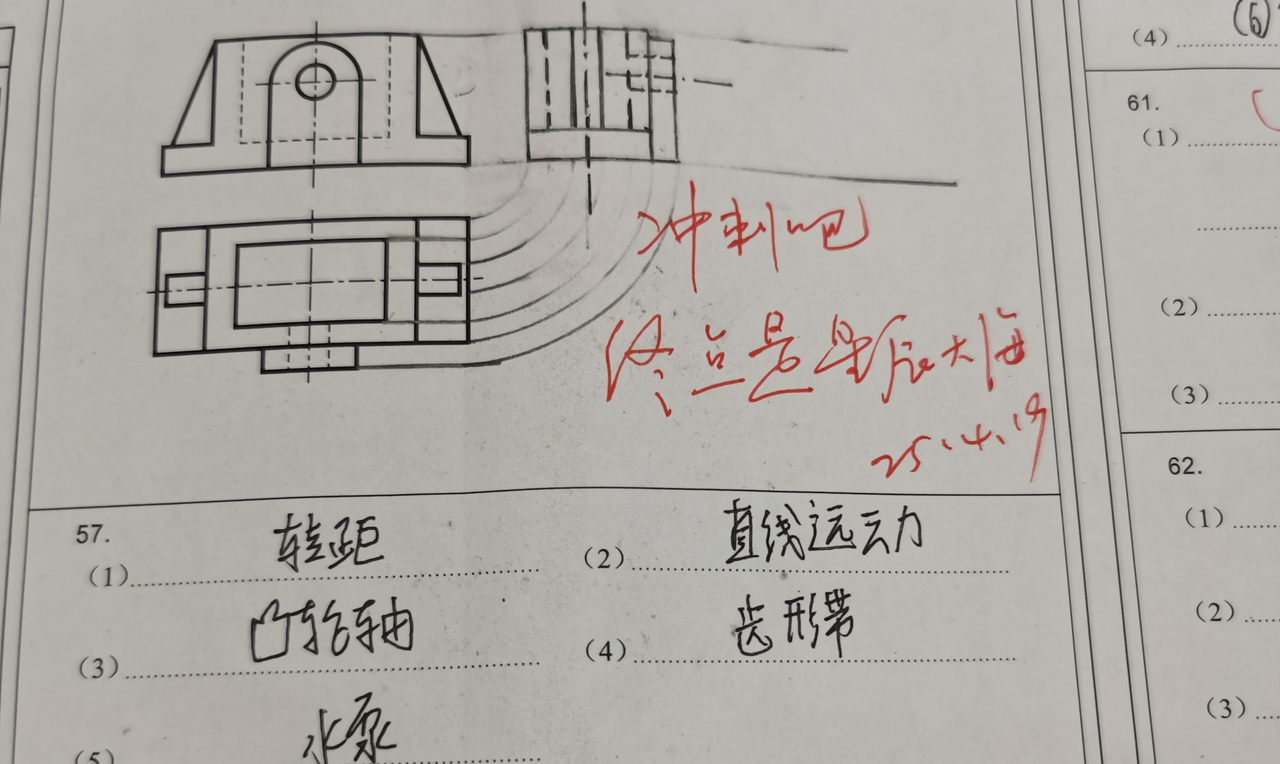 冲刺吧
终点是星辰大海
25.4.19
57.
(1) 转距
(2) 直线运动
(3) 凸轮轴
(4) 齿形带
(5) 水泵
(4) (6)
61.
(1)
(2)
(3)
62.
(1)
(2)
(3)